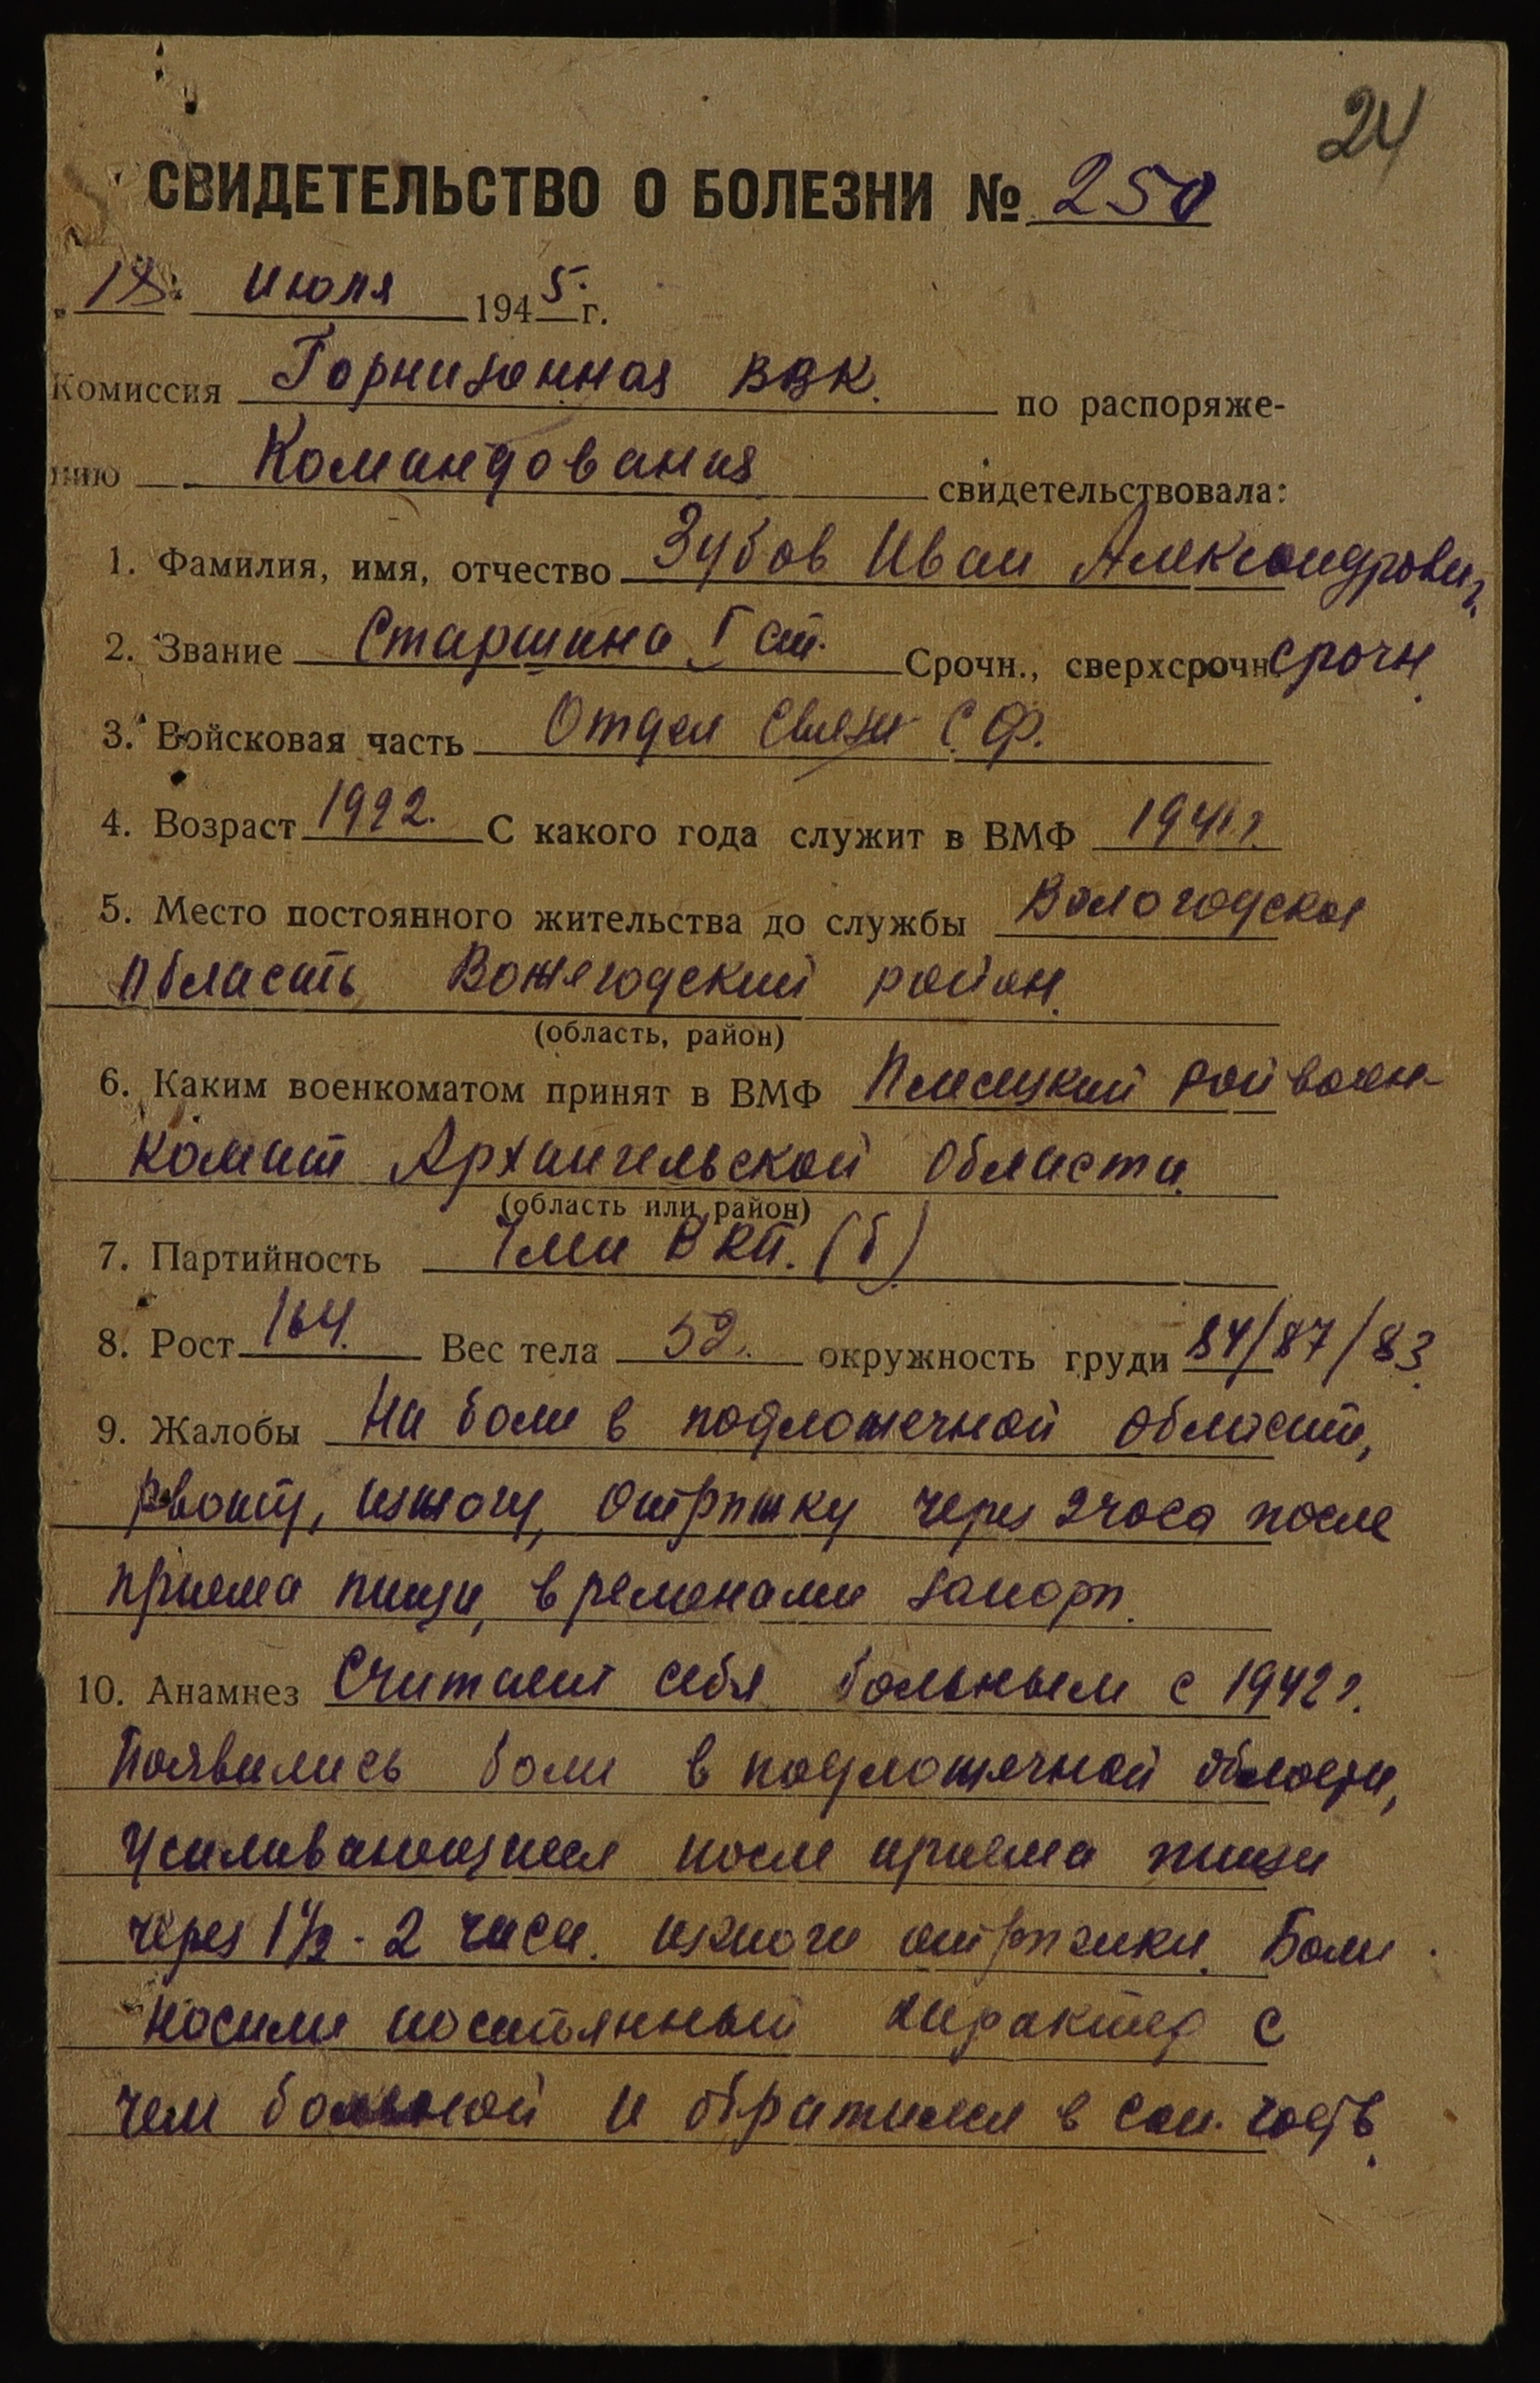 24
СВИДЕТЕЛЬСТВО О БОЛЕЗНИ № 250
"18" Июля 1945 г.
Комиссия Горнизонная ВВК. по распоряже-
нию Командования свидетельствовала:
1. Фамилия, имя, отчество Зубов Иван Александрович
2. Звание Старшина I ст. Срочн., сверхсрочн. срочн.
3. Войсковая часть Отдел Связи С.Ф.
4. Возраст 1922. С какого года служит в ВМФ 1941г.
5. Место постоянного жительства до службы Вологодская
область Вожегодский район.
(область, район)
6. Каким военкоматом принят в ВМФ Плесецкий рай воен-
комат Архангельской области.
(область или район)
7. Партийность Член ВКП.(б)
8. Рост 164. Вес тела 52. окружность груди 84/87/83.
9. Жалобы На боли в подложечной области,
рвоту, изжогу, отрыжку через 2 часа после
приема пищи, временами запоры.
10. Анамнез Считает себя больным с 1942г.
Появились боли в подложечной области,
усиливающиеся после приема пищи
через 1½-2 часа. изжоги отрыжки. Боли
носили постоянный характер с
чем больной и обратился в сан. часть.